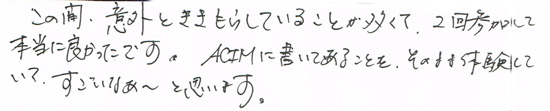 この間、意外とききもらしていることが多くて、2回参加して
本当に良かったです。ACIMに書いてあることを、そのまま体験して
いて、すごいなあ〜と思います。